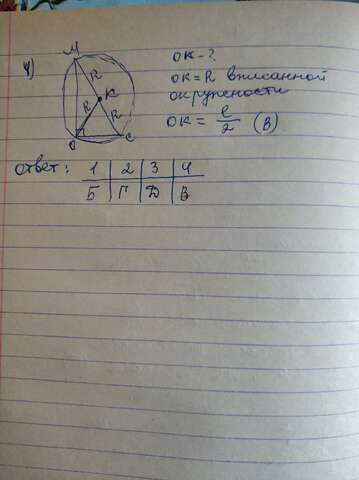 4)
M
R
K
R
R
O
C
OK - ?
OK = R вписанной
окружности
OK = l/2 (В)
ответ:
1 2 3 4
Б Г Д В